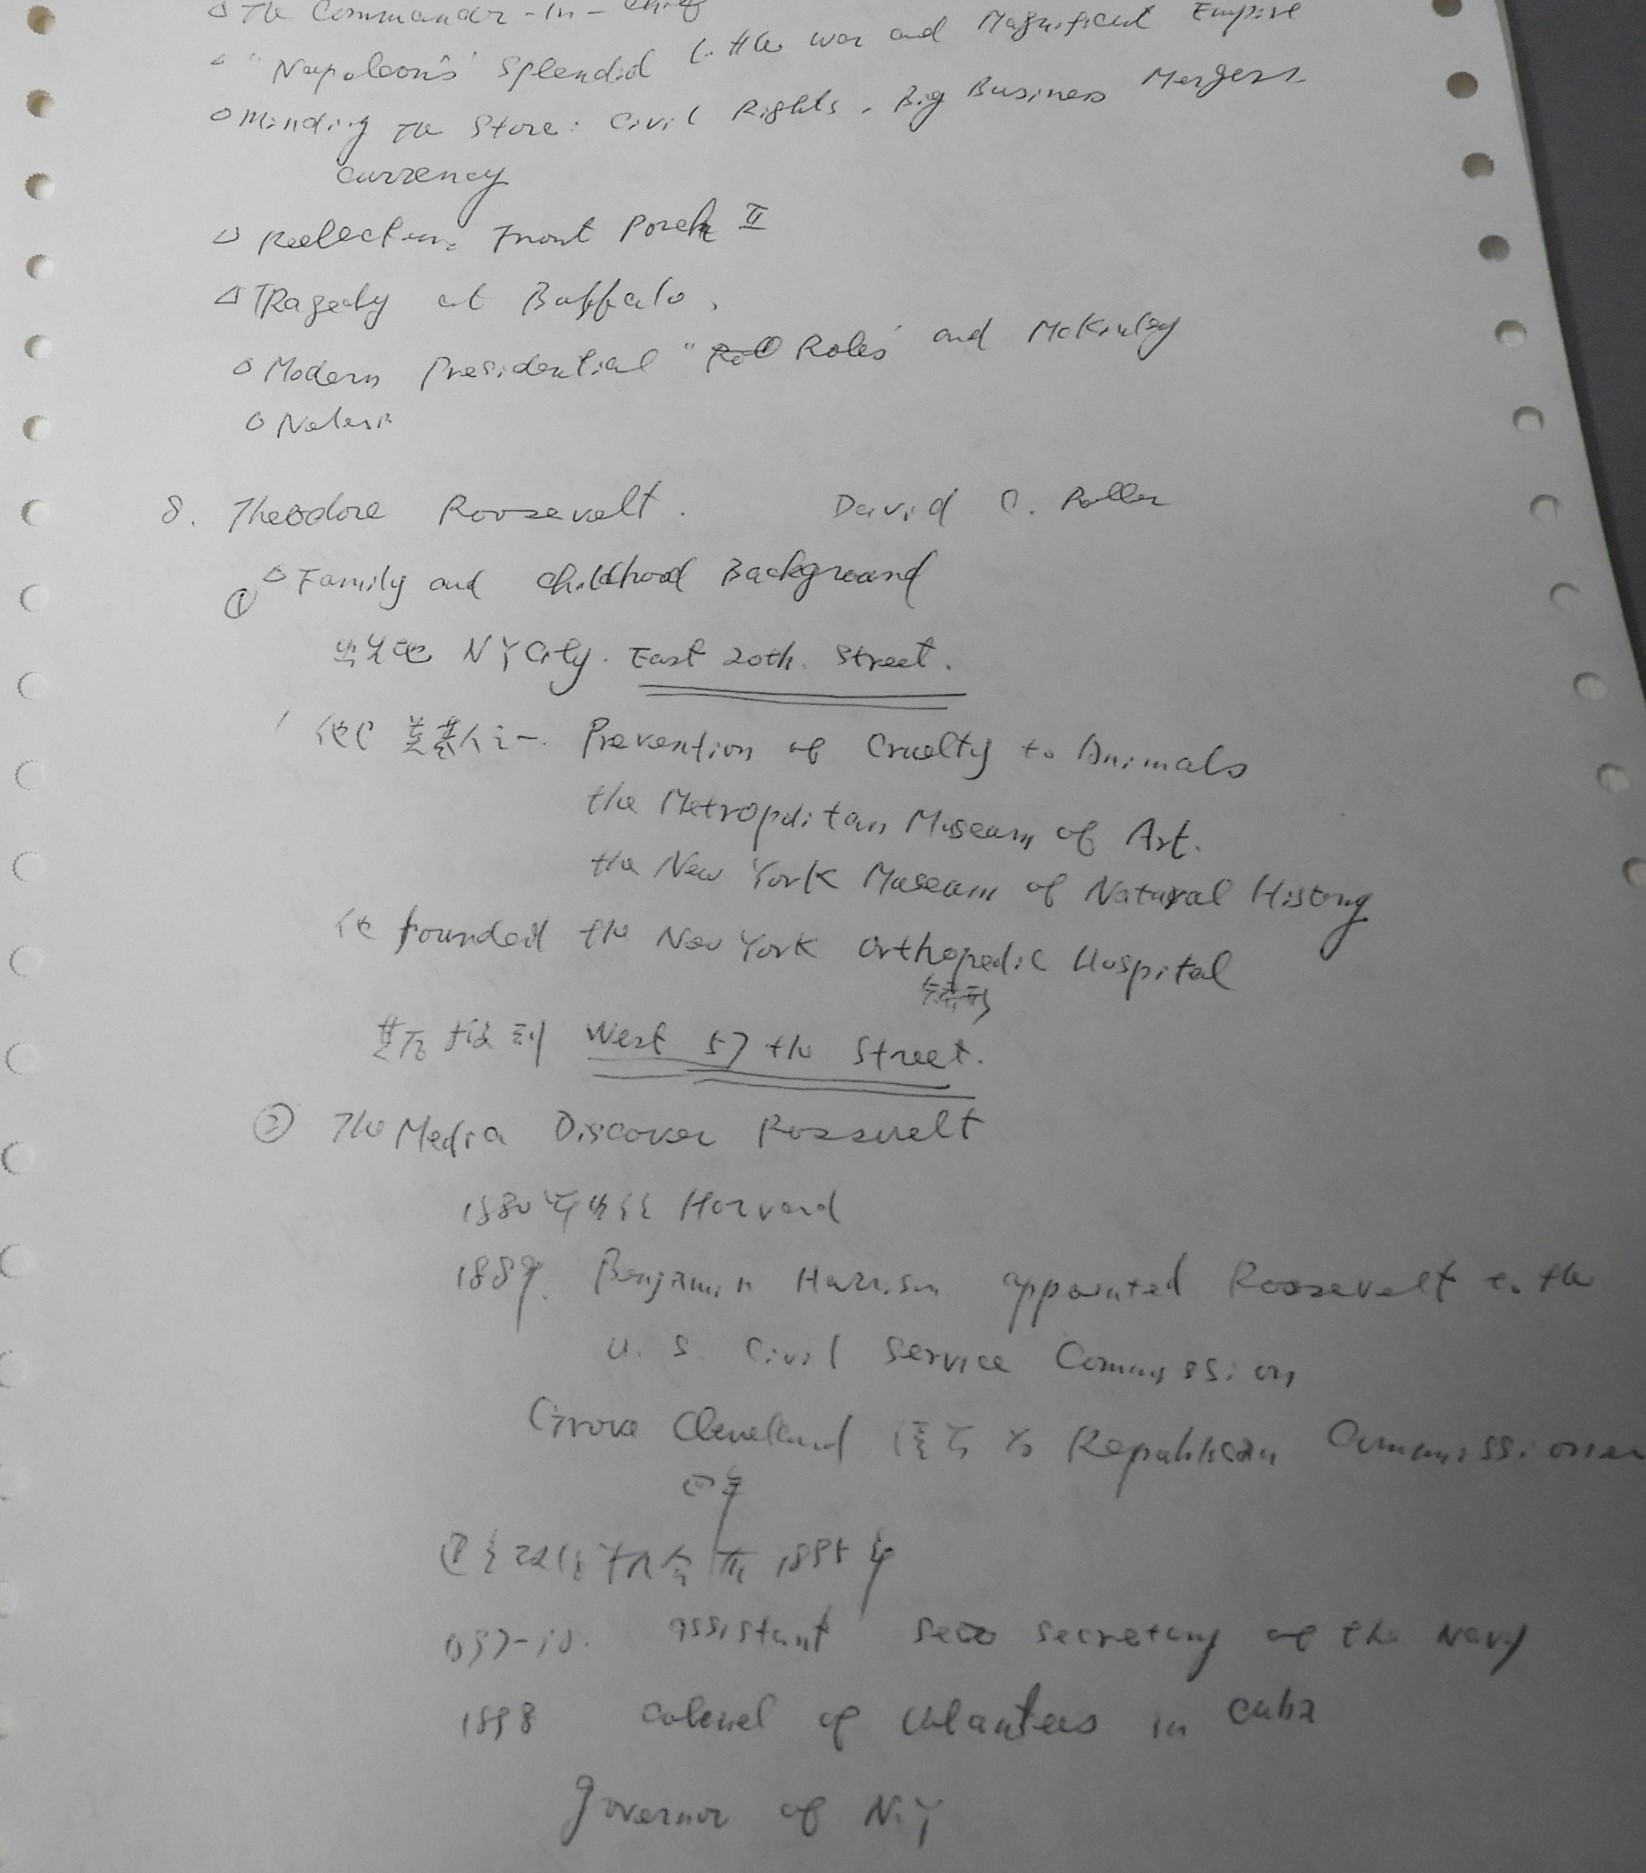 The Commander-In-Chief
"Napoleon's" Splendid little war and Magnificent Empire
Minding the Store: Civil Rights, Big Business Mergers
currency
Reelection: Front Porch II
Tragedy at Buffalo,
Modern Presidential "Roles" and McKinley
Notes
8. Theodore Roosevelt. David C.
① Family and childhood Background
出生地 NY City. East 20th. Street.
他 Prevention of Cruelty to Animals
the Metropolitan Museum of Art.
the New York Museum of Natural History
他 founded the New York Orthopedic Hospital
矯形
其后搬到 West 57 th Street.
② The Media Discover Roosevelt
1880年 Harvard
1889. Benjamin Harrison appointed Roosevelt to the
U. S. Civil Service Commission
Grove Cleveland Republican Commissioner
四年
机会 1895年
assistant secretary of the Navy
1898 colonel of volunteers in Cuba
governor of N.Y